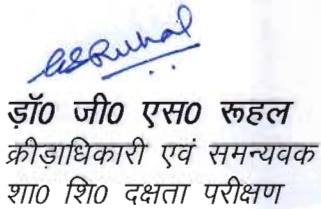 GSRuhal
ड़ॉ0 जी0 एस0 रूहल
क्रीड़ाधिकारी एवं समन्यवक
शा0 शि0 दक्षता परीक्षण